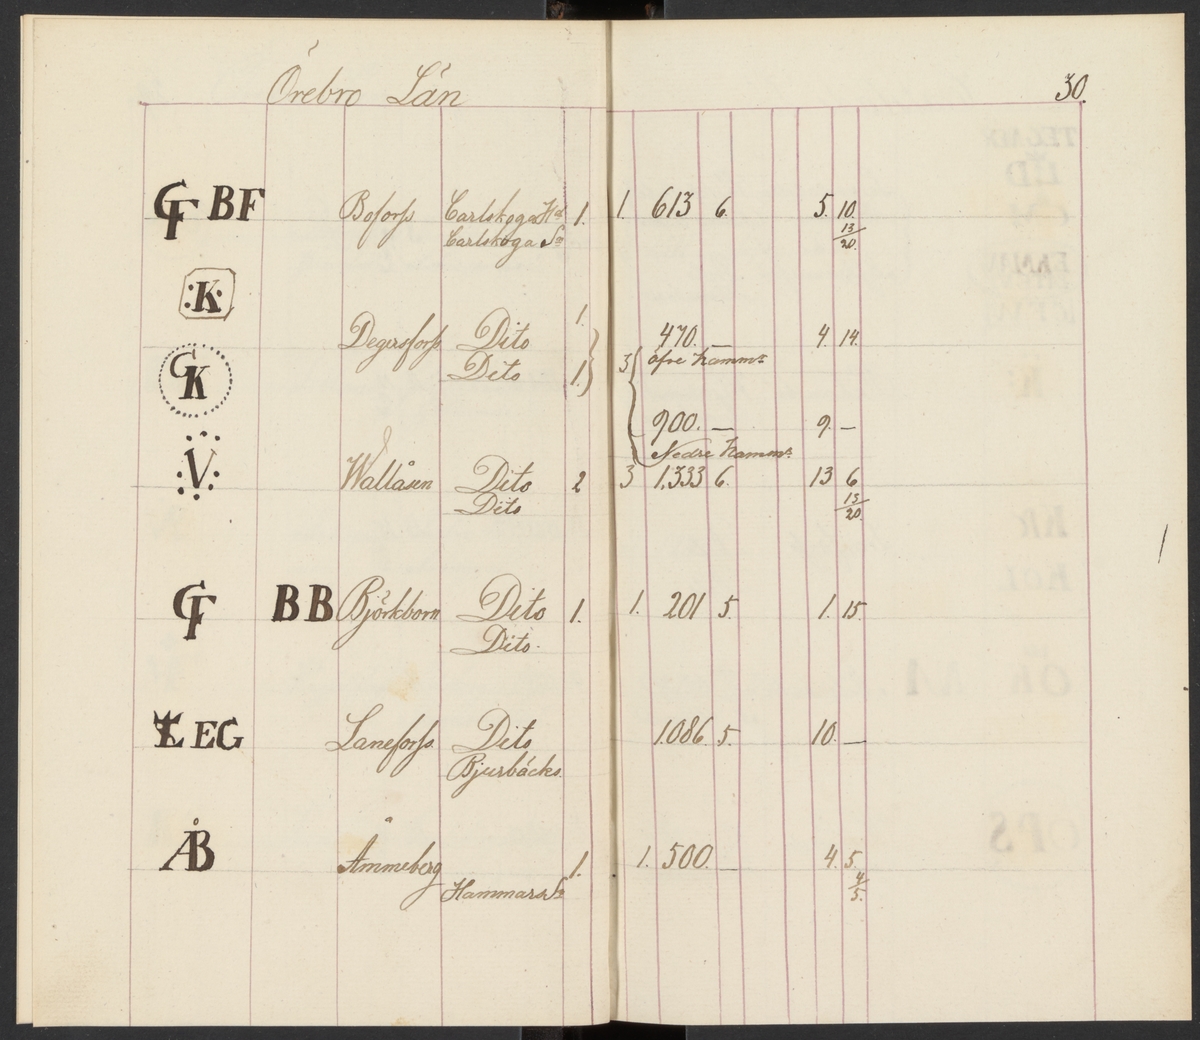 Örebro Län
30.
GF BF Boforss Carlskoga Hd 1. 1. 613 6. 5. 10.
Carlskoga Sn 13/20.
:K:
Degersforss Dito 1. 470. — 4 14.
Dito 1. 3 öfre hammr
CK
900. — 9. —
Nedre hammr
V Wallåsen Dito 2 3 1,333 6. 13 6
Dito 13/20.
GF BB Björkborn Dito 1. 1. 201 5. 1. 15.
Dito.
L EG Laneforss Dito 1086. 5. 10. —
Bjurbäcks.
ÅB Åmmeberg 1. 1. 500. — 4. 5.
Hammars Sn 4/5.